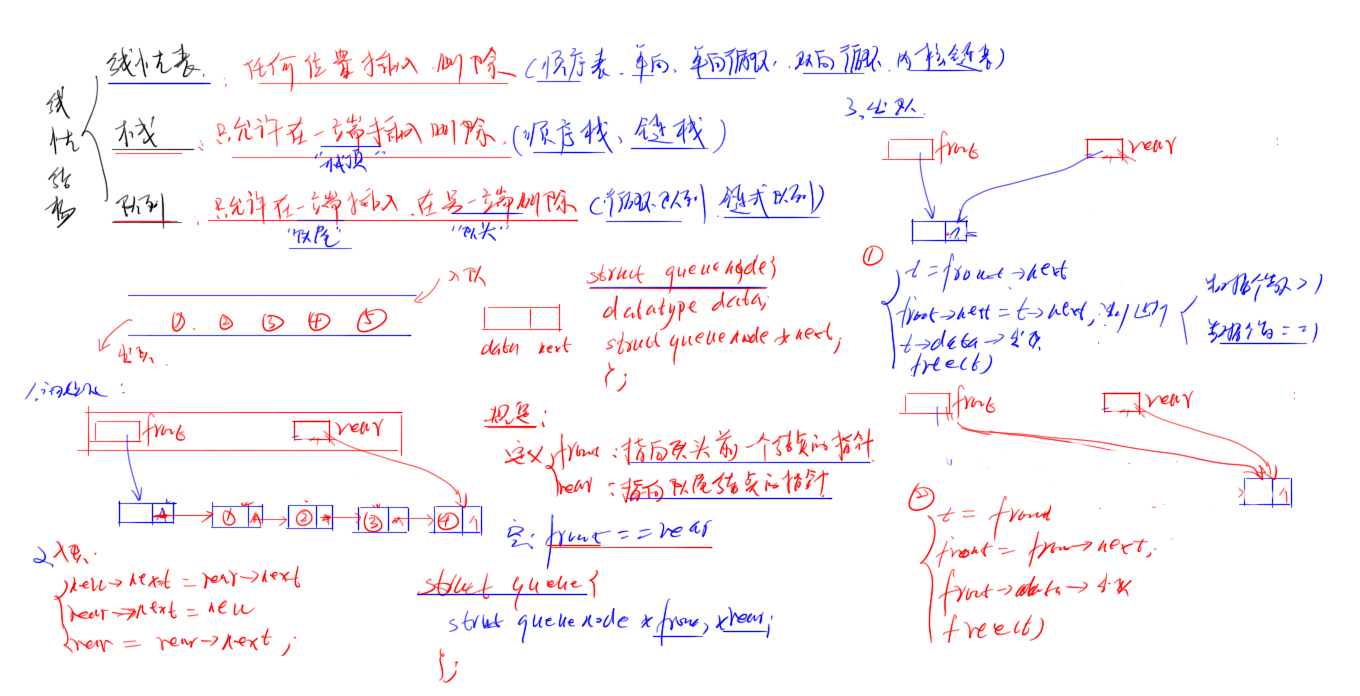 线性结构
线性表：任何位置插入、删除（顺序表、单向、单向循环、双向循环、内核链表）
栈：只允许在一端插入删除（顺序栈、链栈）
"栈顶"
队列：只允许在一端插入、在另一端删除（循环队列、链式队列）
"队尾" "队头"
入队
① ② ③ ④ ⑤
出队
data next
struct queuenode{
datatype data;
struct queuenode *next;
};
1.初始化：
front rear
① ② ③ ④
规定：
定义 front：指向队头前一个结点的指针
rear：指向队尾结点的指针
空：front == rear
struct queue{
struct queuenode *front, *rear;
};
2、入队：
new->next = rear->next
rear->next = new
rear = rear->next;
3、出队
front rear
①
t = front->next
front->next = t->next;
t->data->出队
free(t)
front rear
②
t = front
front = front->next;
front->data->出队
free(t)